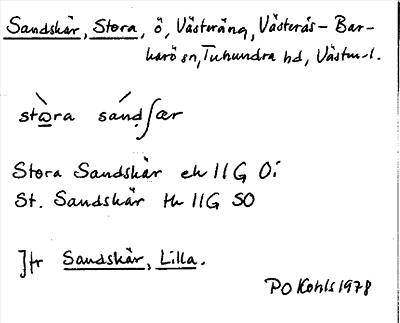 Sandskär, Stora, ö, Västeräng, Västerås-Bar-
karö sn, Tuhundra hd, Västm.l.
sto̲ra sanḍʃær
Stora Sandskär ek 11G 0i
St. Sandskär tk 11G SO
Jfr Sandskär, Lilla.
PO Kohls 1978